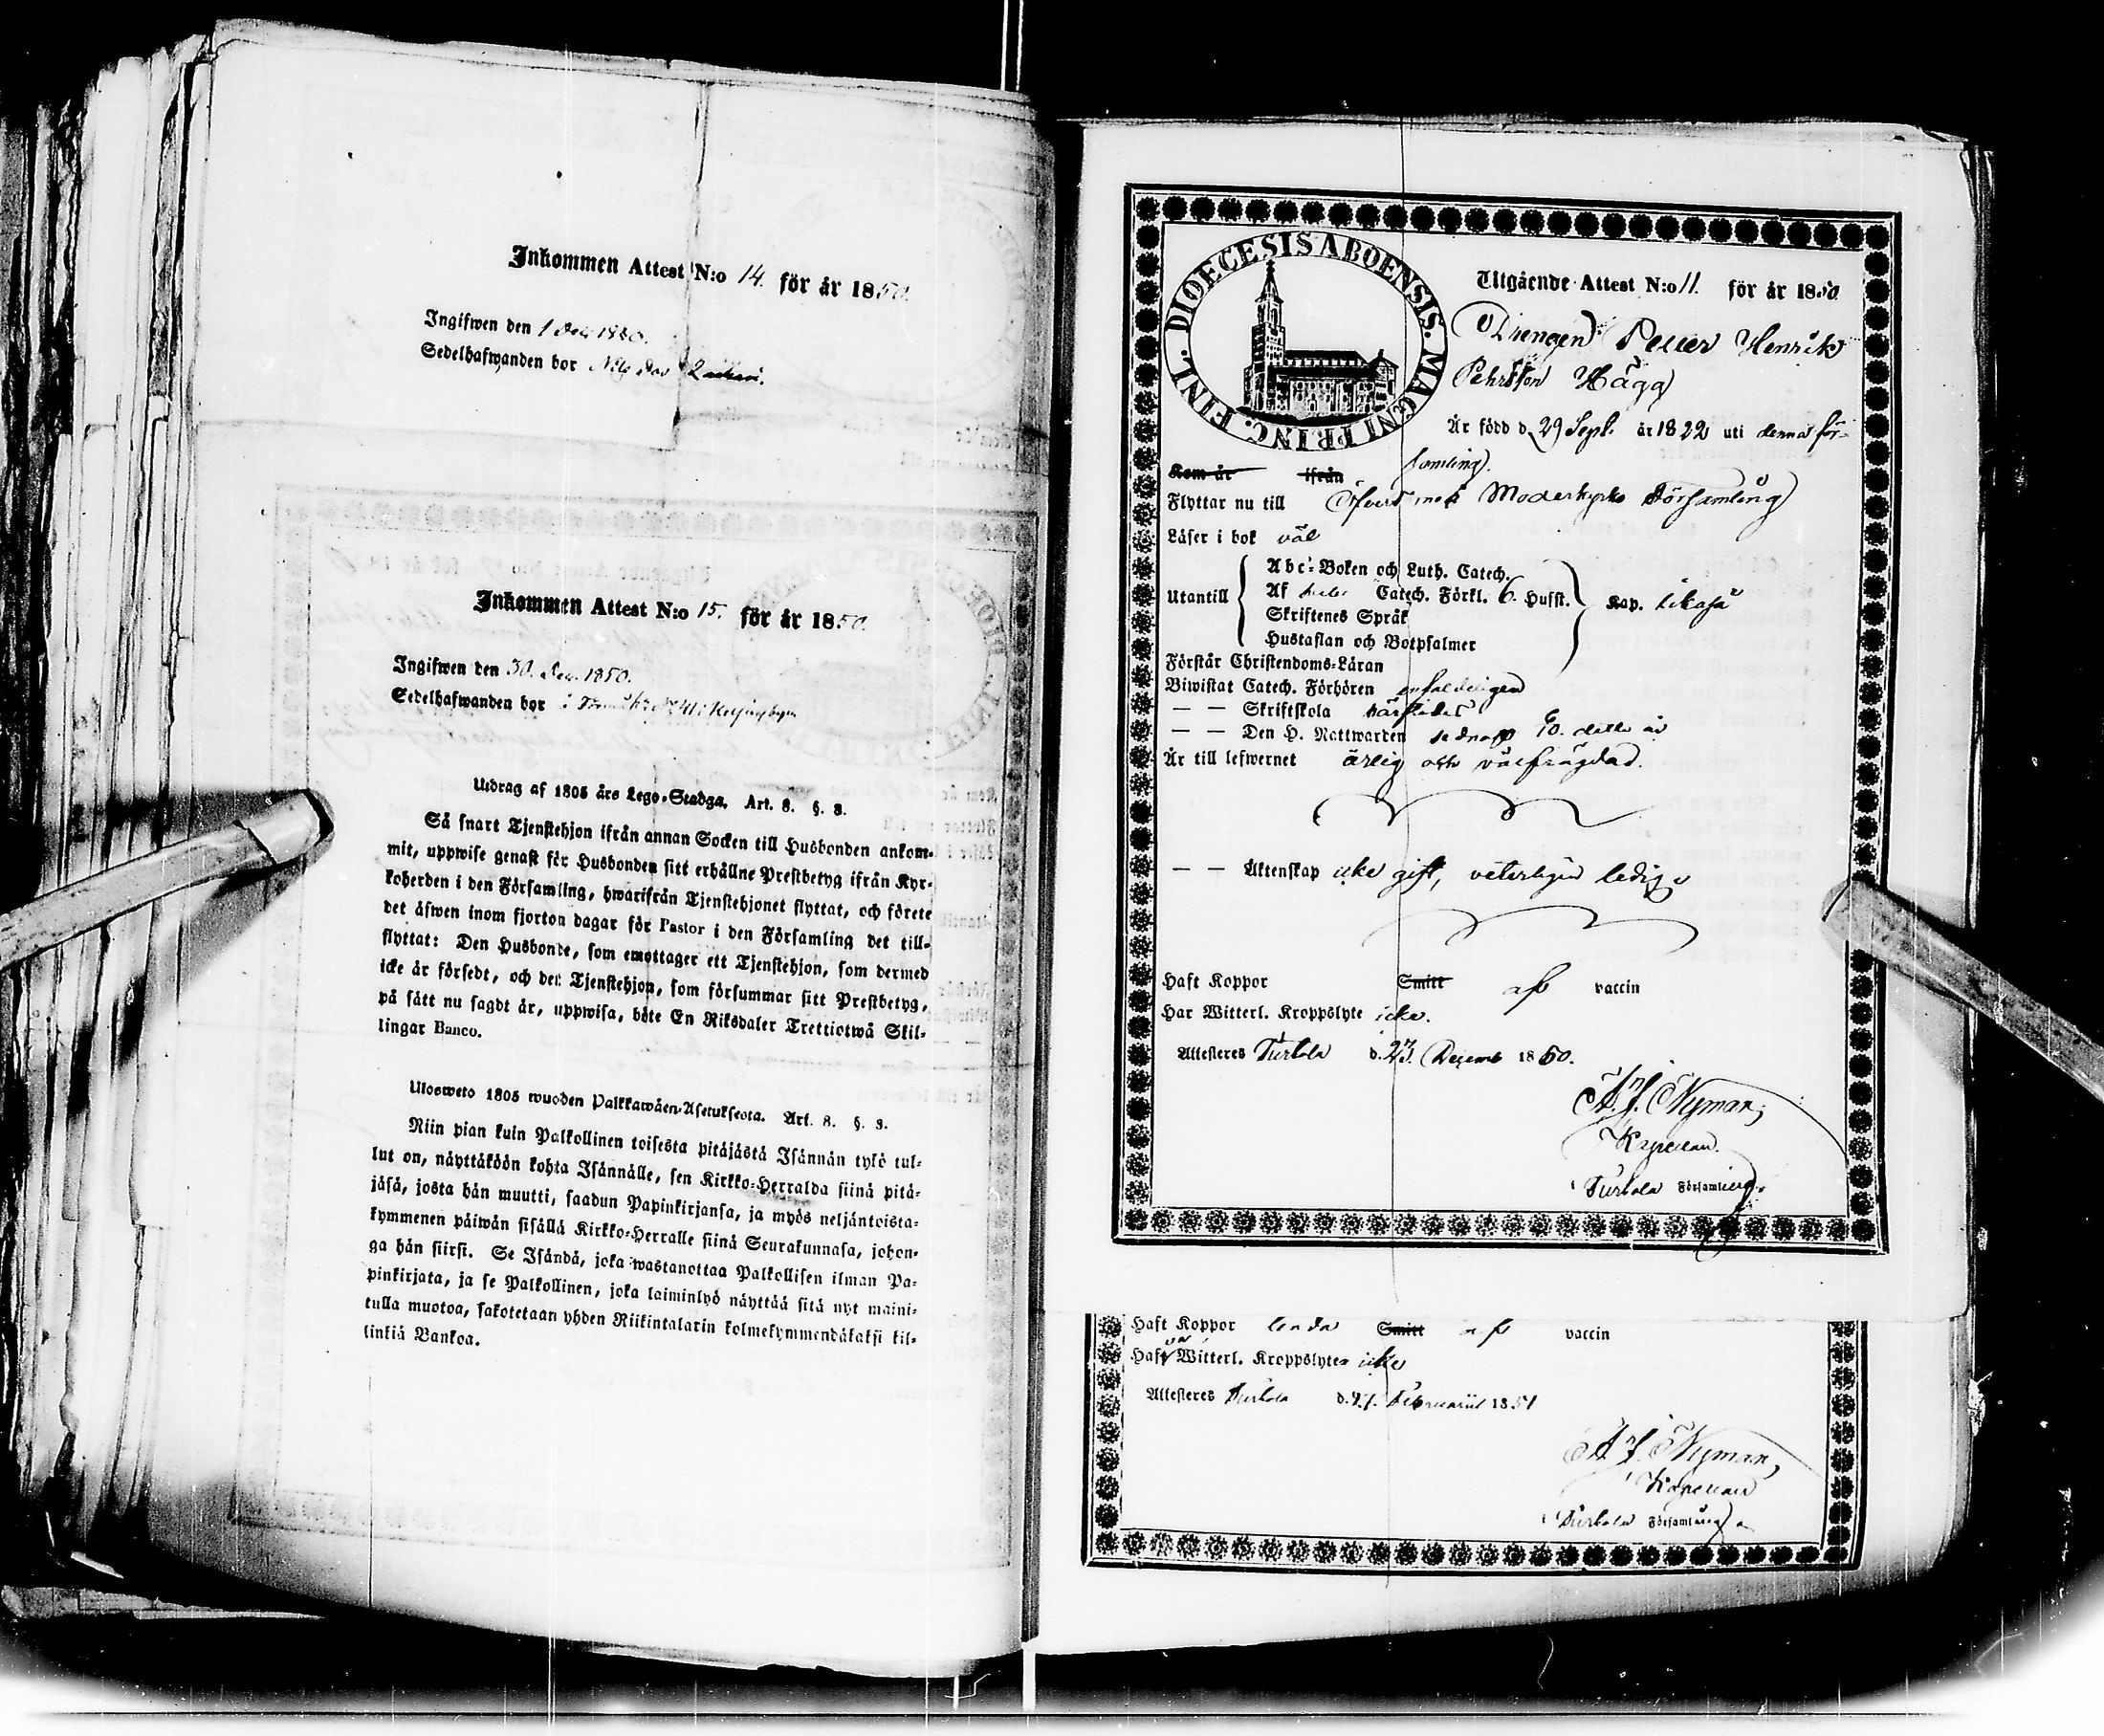 Inkommen Attest N:o 14. för år 1850.
Ingifwen den 1 Dec. 1850.
Sedelhafwanden bor
Inkommen Attest N:o 15. för år 1850.
Ingifwen den 30. Dec. 1850.
Sedelhafwanden bor i
Utdrag af 1805 års Lego-Stadga. Art. 8. §. 3.
Så snart Tjenstehjon ifrån annan Socken till Husbonden ankom-
mit, uppwise genast för Husbonden sitt erhållne Prestbetyg ifrån Kyr-
koherden i den Församling, hwarifrån Tjenstehjonet flyttat, och förete
det äfwen inom fjorton dagar för Pastor i den Församling det till-
flyttat: Den Husbonde, som emottager ett Tjenstehjon, som dermed
icke är försedt, och det Tjenstehjon, som försummar sitt Prestbetyg,
på sätt nu sagdt är, uppwisa, böte En Riksdaler Trettiotwå Skil-
lingar Banco.
Ulosweto 1805 wuoden Palkkawäen-Asetuksesta. Art. 8. §. 3.
Niin pian kuin Palkollinen toisesta pitäjästä Isännän tykö tul-
lut on, näyttäköön kohta Isännälle, sen Kirkko-Herralda siinä pitä-
jäsä, josta hän muutti, saadun Papinkirjansa, ja myös neljäntoista-
kymmenen päiwän sisällä Kirkko-Herralle siinä Seurakunnasa, johon-
ga hän siirsi. Se Isändä, joka wastanottaa Palkollisen ilman Pa-
pinkirjata, ja se Palkollinen, joka laiminlyö näyttää sitä nyt maini-
tulla muotoa, sakotetaan yhden Riikintalarin kolmekymmendäkaksi kil-
linkiä Bankoa.
DIOECESIS ABOENSIS. MAGNI PRINC. FINL.
Utgående Attest N:o 11. för år 1850
Drengen Petter Henrik
Pehrsson Hägg
Är född d. 29 Sept. år 1822 uti denna för-
samling.
Kom år ifrån
Flyttar nu till Öfvertorneå Moderkyrko Församling
Läser i bok väl
Utantill
Abc-Boken och Luth. Catech.
Af Catech. Förkl. 6. Hufst. Kap. likaså
Skriftenes Språk
Hustaflan och Botpsalmer
Förstår Christendoms-Läran
Biwistat Catech. Förhören
— — Skriftskola härstädes
— — Den H. Nattwarden sednast 10. detta år
Är till lefwernet ärlig och välfrägdad.
— — Äktenskap icke gift, veterligen ledig
Haft Koppor Smitt af vaccin
Har Witterl. Kroppslyte icke.
Attesteres Turtola d. 23. Decemb 1850.
A. J. Nyman,
Kapellan
i Turtola Församling.
Haft Koppor Smitt af vaccin
Haft Witterl. Kroppslyte icke
Attesteres Turtola d. 27. Februarii 1851
A. J. Nyman,
Kapellan
i Turtola Församling